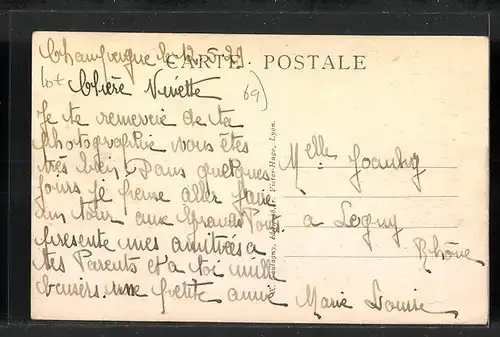 Champagne le 12-5-21
CARTE POSTALE
Chère Ninette
69)
Je te remercie de ta
photographie vous êtes
très bien, Dans quelques
jours je pense aller faire
un tour aux Grands Pou
présente mes amitiées à
tes Parents et a toi mille
baisers. une petite amie
Marie Louise
Victor-Hugo, Lyon.
Melle
a Legny
Rhône